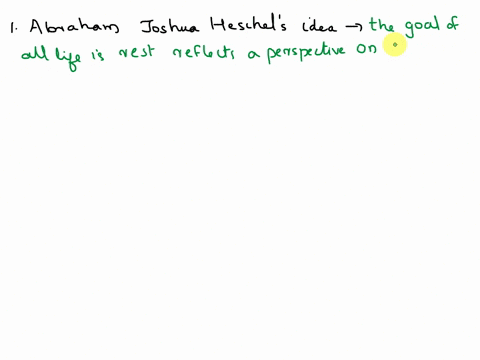 1. Abraham Joshua Heschel's idea → the goal of
all life is rest reflects a perspective on